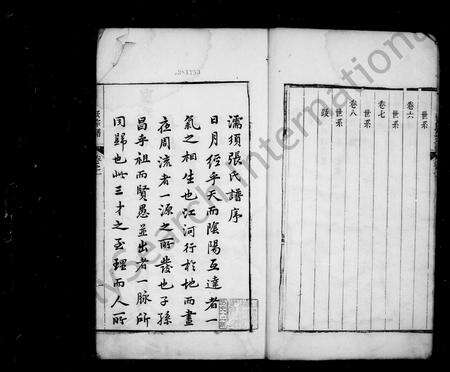 世系
卷六
世系
卷七
世系
卷八
世系
跋
濡須張氏譜序
日月經乎天而陰陽互達者一
氣之相生也江河行於地而晝
夜周流者一源之所發也子孫
昌乎祖而賢愚並出者一脉所
同歸也此三才之至理而人所